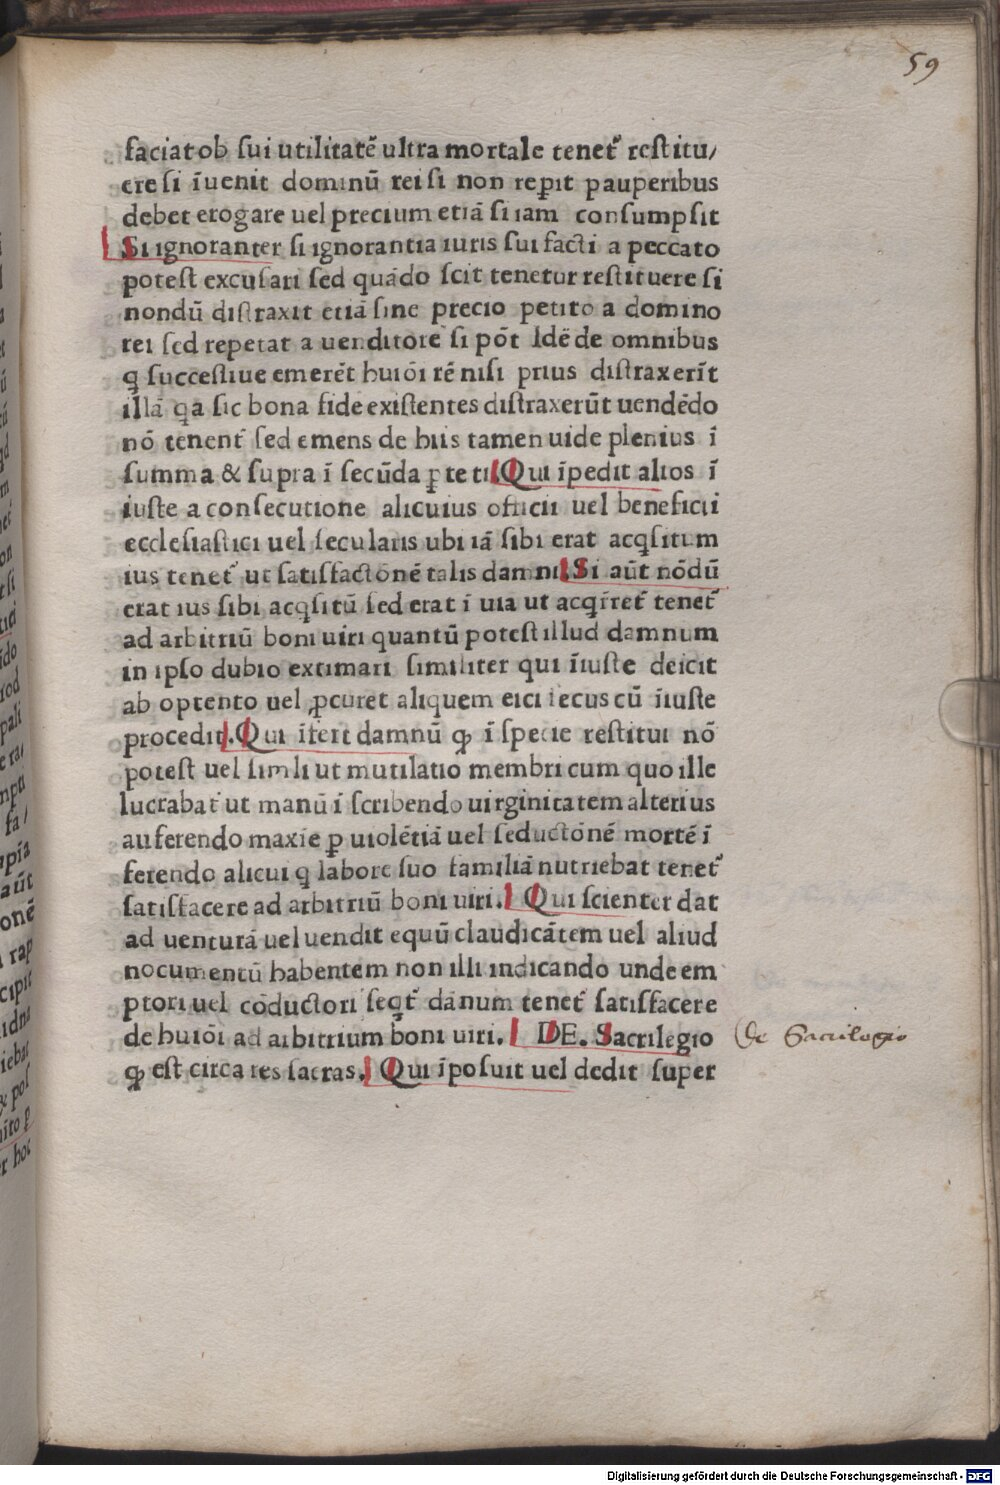 59
faciat ob sui utilitatē ultra mortale tenet᷑ restitu/
ere si īuenit dominū rei si non rep̱it pauperibus
debet erogare uel precium etiā si iam consumpsit
Si ignoranter si ignorantia iuris sui facti a peccato
potest excusari sed quādo scit tenetur restituere si
nondū distraxit etiā sine precio petito a domino
rei sed repetat a uenditore si pōt Idē de omnibus
ꝗ successiue emerēt huiōi rē nisi prius distraxerīt
illā ꝗa sic bona fide existentes distraxerūt uendēdo
nō tenent᷑ sed emens de hiis tamen uide plenius ī
summa & supra ī secūda ꝑte ti. Qui īpedit alios ī
iuste a consecutione alicuius officii uel beneficii
ecclesiastici uel secularis ubi iā sibi erat acꝗsitum
ius tenet᷑ ut satisfactōnē talis damni. Si aūt nōdū
erat ius sibi acꝗsitū sed erat ī uia ut acꝗreret᷑ tenet᷑
ad arbitriū boni uiri quantū potest illud damnum
in ipso dubio extimari similiter qui īiuste deicit
ab optento uel ꝓcuret aliquem eici secus cū īiuste
procedit. Qui īfert damnū ꝙ ī specie restitui nō
potest uel simli ut mutilatio membri cum quo ille
lucrabat᷑ ut manū ī scribendo uirginitatem alterius
auferendo maxīe ꝑ uiolētiā uel seductōnē mortē ī
ferendo alicui ꝗ labore suo familiā nutriebat tenet᷑
satisfacere ad arbitriū boni uiri. Qui scienter dat
ad uenturā uel uendit equū claudicātem uel aliud
nocumentū habentem non illi indicando unde em
ptori uel cōductori seqt᷑ dānum tenet᷑ satisfacere
de huiōi ad arbitrium boni uiri. DE. Sacrilegio
De Sacrilegio
ꝙ est circa res sacras. Qui īposuit uel dedit super
Digitalisierung gefördert durch die Deutsche Forschungsgemeinschaft - DFG